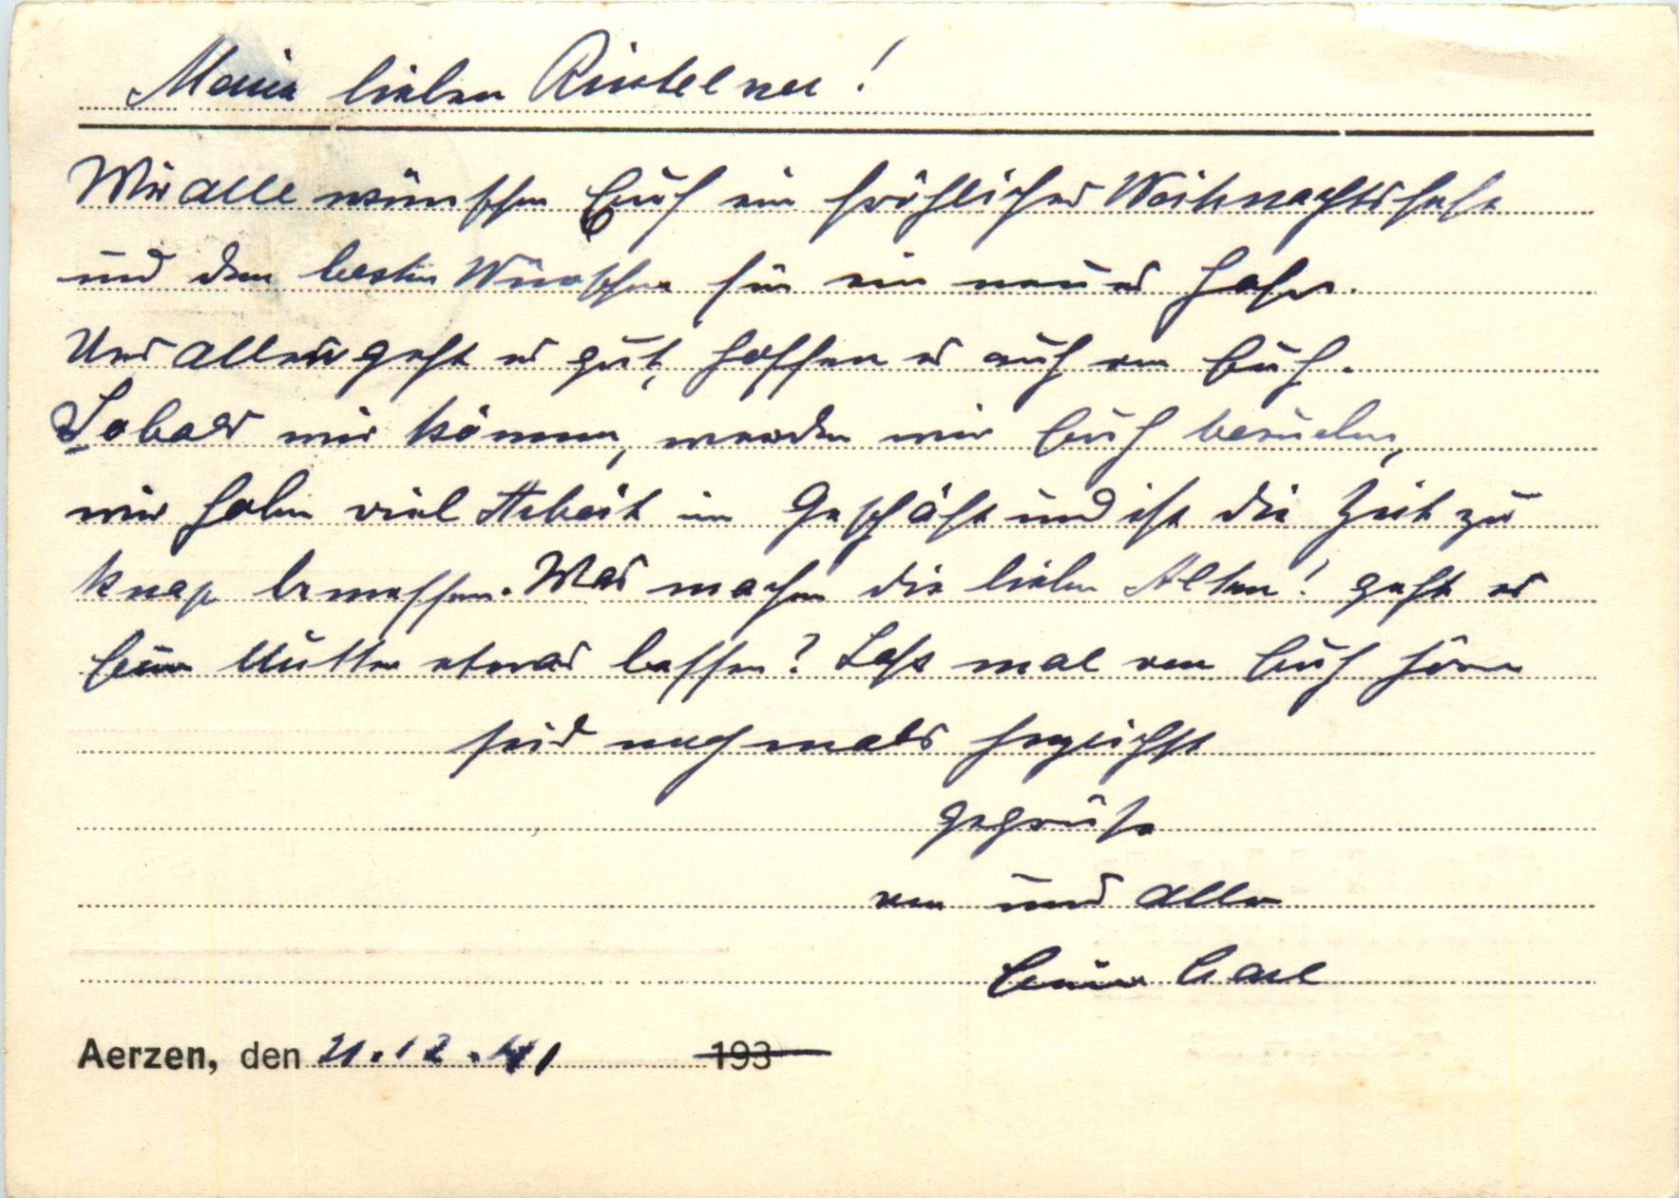 Meine lieben Rintelner!
Wir alle wünschen Euch ein fröhliches Weihnachtsfest
und den besten Wünschen für ein neues Jahr.
Uns allen geht es gut, hoffen es auch von Euch.
Sobald wir können, werden wir Euch besuchen,
wir haben viel Arbeit im Geschäft und ist die Zeit zu
knap bemessen. Was machen die lieben Alten! geht es
Eurer Mutter etwas besser? Laßt mal von Euch hören
seid nochmals herzlichst
gegrüßt
von uns allen
Euer Carl
Aerzen, den 21.12.41 193